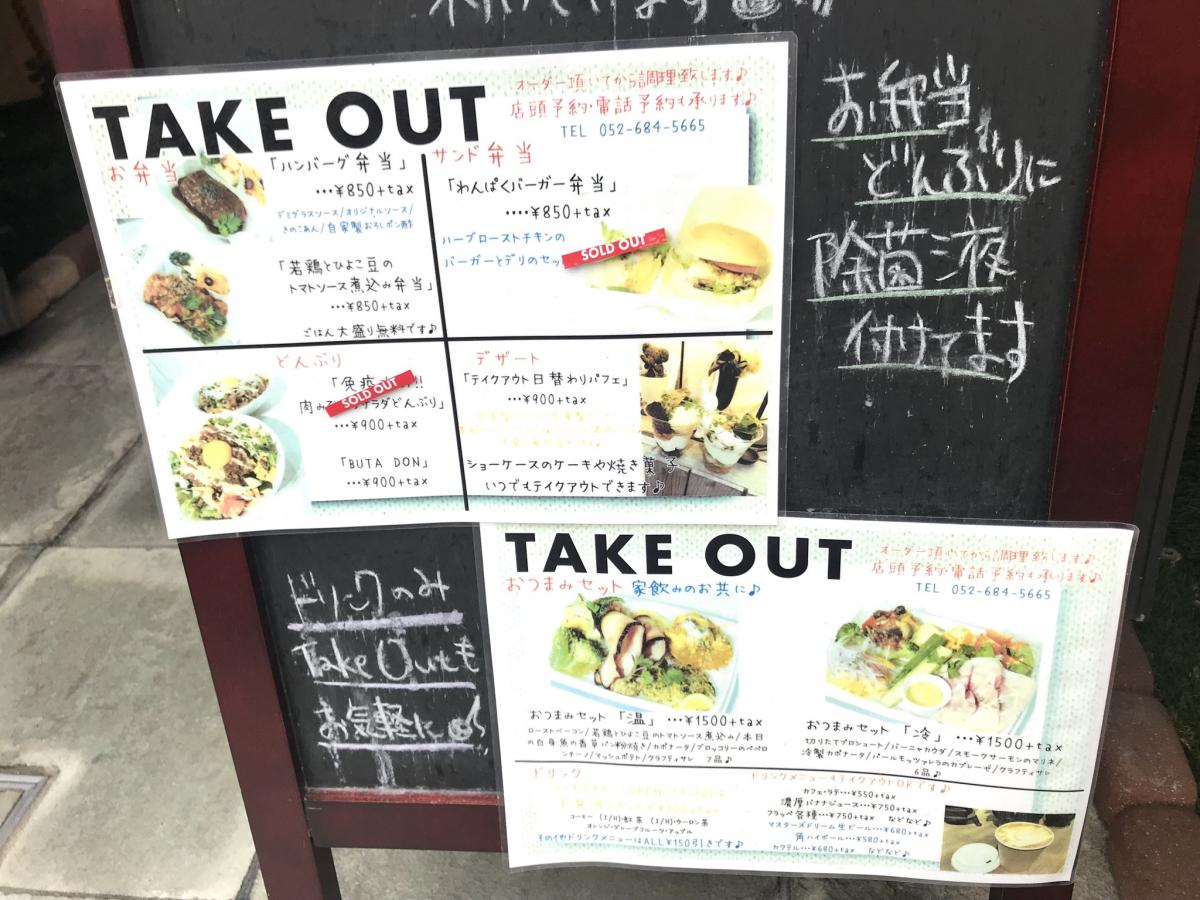 TAKE OUT
オーダー頂いてから調理致します♪
店頭予約・電話予約も承ります♪
TEL 052-684-5665
お弁当
「ハンバーグ弁当」
…¥850+tax
デミグラスソース/オリジナルソース/
きのこあん/自家製おろしポン酢
「若鶏とひよこ豆の
トマトソース煮込み弁当」
…¥850+tax
ごはん大盛り無料です♪
サンド弁当
「わんぱくバーガー弁当」
....¥850+tax
ハーブローストチキンの
バーガーとデリのセッ
SOLD OUT
どんぶり
「免疫
SOLD OUT
肉み サラダどんぶり」
…¥900+tax
「BUTA DON」
…¥900+tax
デザート
「テイクアウト日替わりパフェ」
…¥900+tax
ショーケースのケーキや焼き菓子
いつでもテイクアウトできます♪
お弁当
どんぶりに
除菌液
付けてます
ドリンクのみ
Take Outも
お気軽に
TAKE OUT
オーダー頂いてから調理致します♪
店頭予約・電話予約も承ります♪
TEL 052-684-5665
おつまみセット 家飲みのお共に♪
おつまみセット「温」…¥1500+tax
ローストベーコン/若鶏とひよこ豆のトマトソース煮込み/本日
の白身魚の香草パン粉焼き/カポナータ/ブロッコリーのペペロ
ンチーノ/マッシュポテト/クラフティサレ 7品♪
おつまみセット「冷」…¥1500+tax
切りたてプロシュート/バーニャカウダ/スモークサーモンのマリネ/
冷製カポナータ/パールモッツァレラのカプレーゼ/クラフティサレ
6品♪
ドリンク
コーヒー (I/H)・紅茶 (I/H)・ウーロン茶
オレンジ・グレープフルーツ・アップル
その他ドリンクメニューはALL¥150引きです♪
ドリンクメニューもテイクアウトOKです♪
カフェ・ラテ…¥550+tax
濃厚バナナジュース…¥750+tax
フラッペ各種…¥750+tax などなど♪
マスターズドリーム生ビール…¥680+tax
角ハイボール…¥580+tax
カクテル…¥680+tax などなど♪